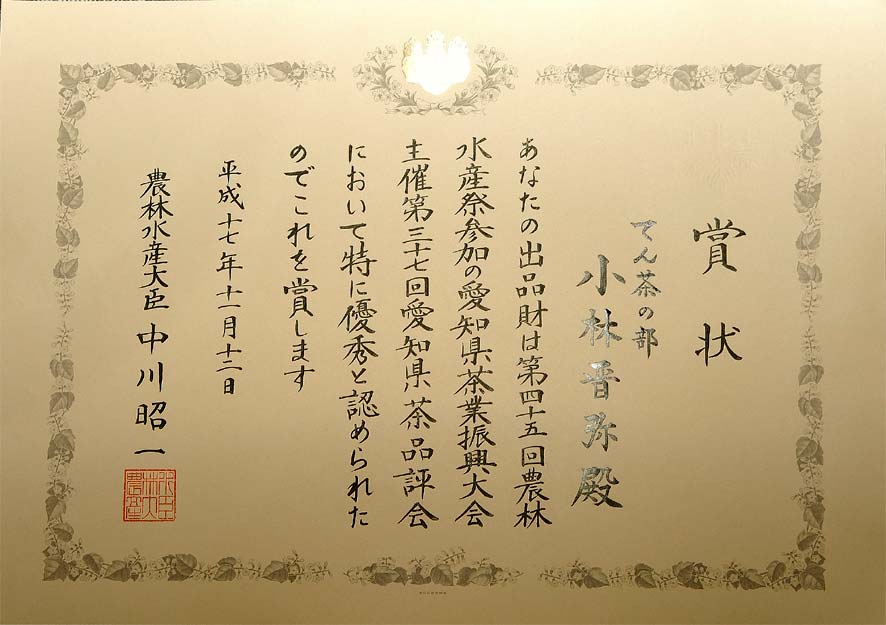 賞状
てん茶の部
小林晋弥殿
あなたの出品財は第四十五回農林
水産祭参加の愛知県茶業振興大会
主催第三十七回愛知県茶品評会
において特に優秀と認められた
のでこれを賞します
平成十七年十一月十二日
農林水産大臣 中川昭一